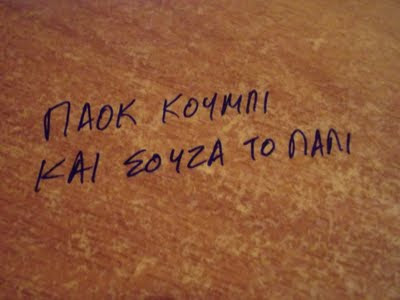 ΠΑΟΚ ΚΟΥΜΠΙ
ΚΑΙ ΣΟΥΖΑ ΤΟ ΠΑΠΙ